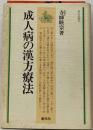 寺師睦宗著
成人病の漢方療法
創元社